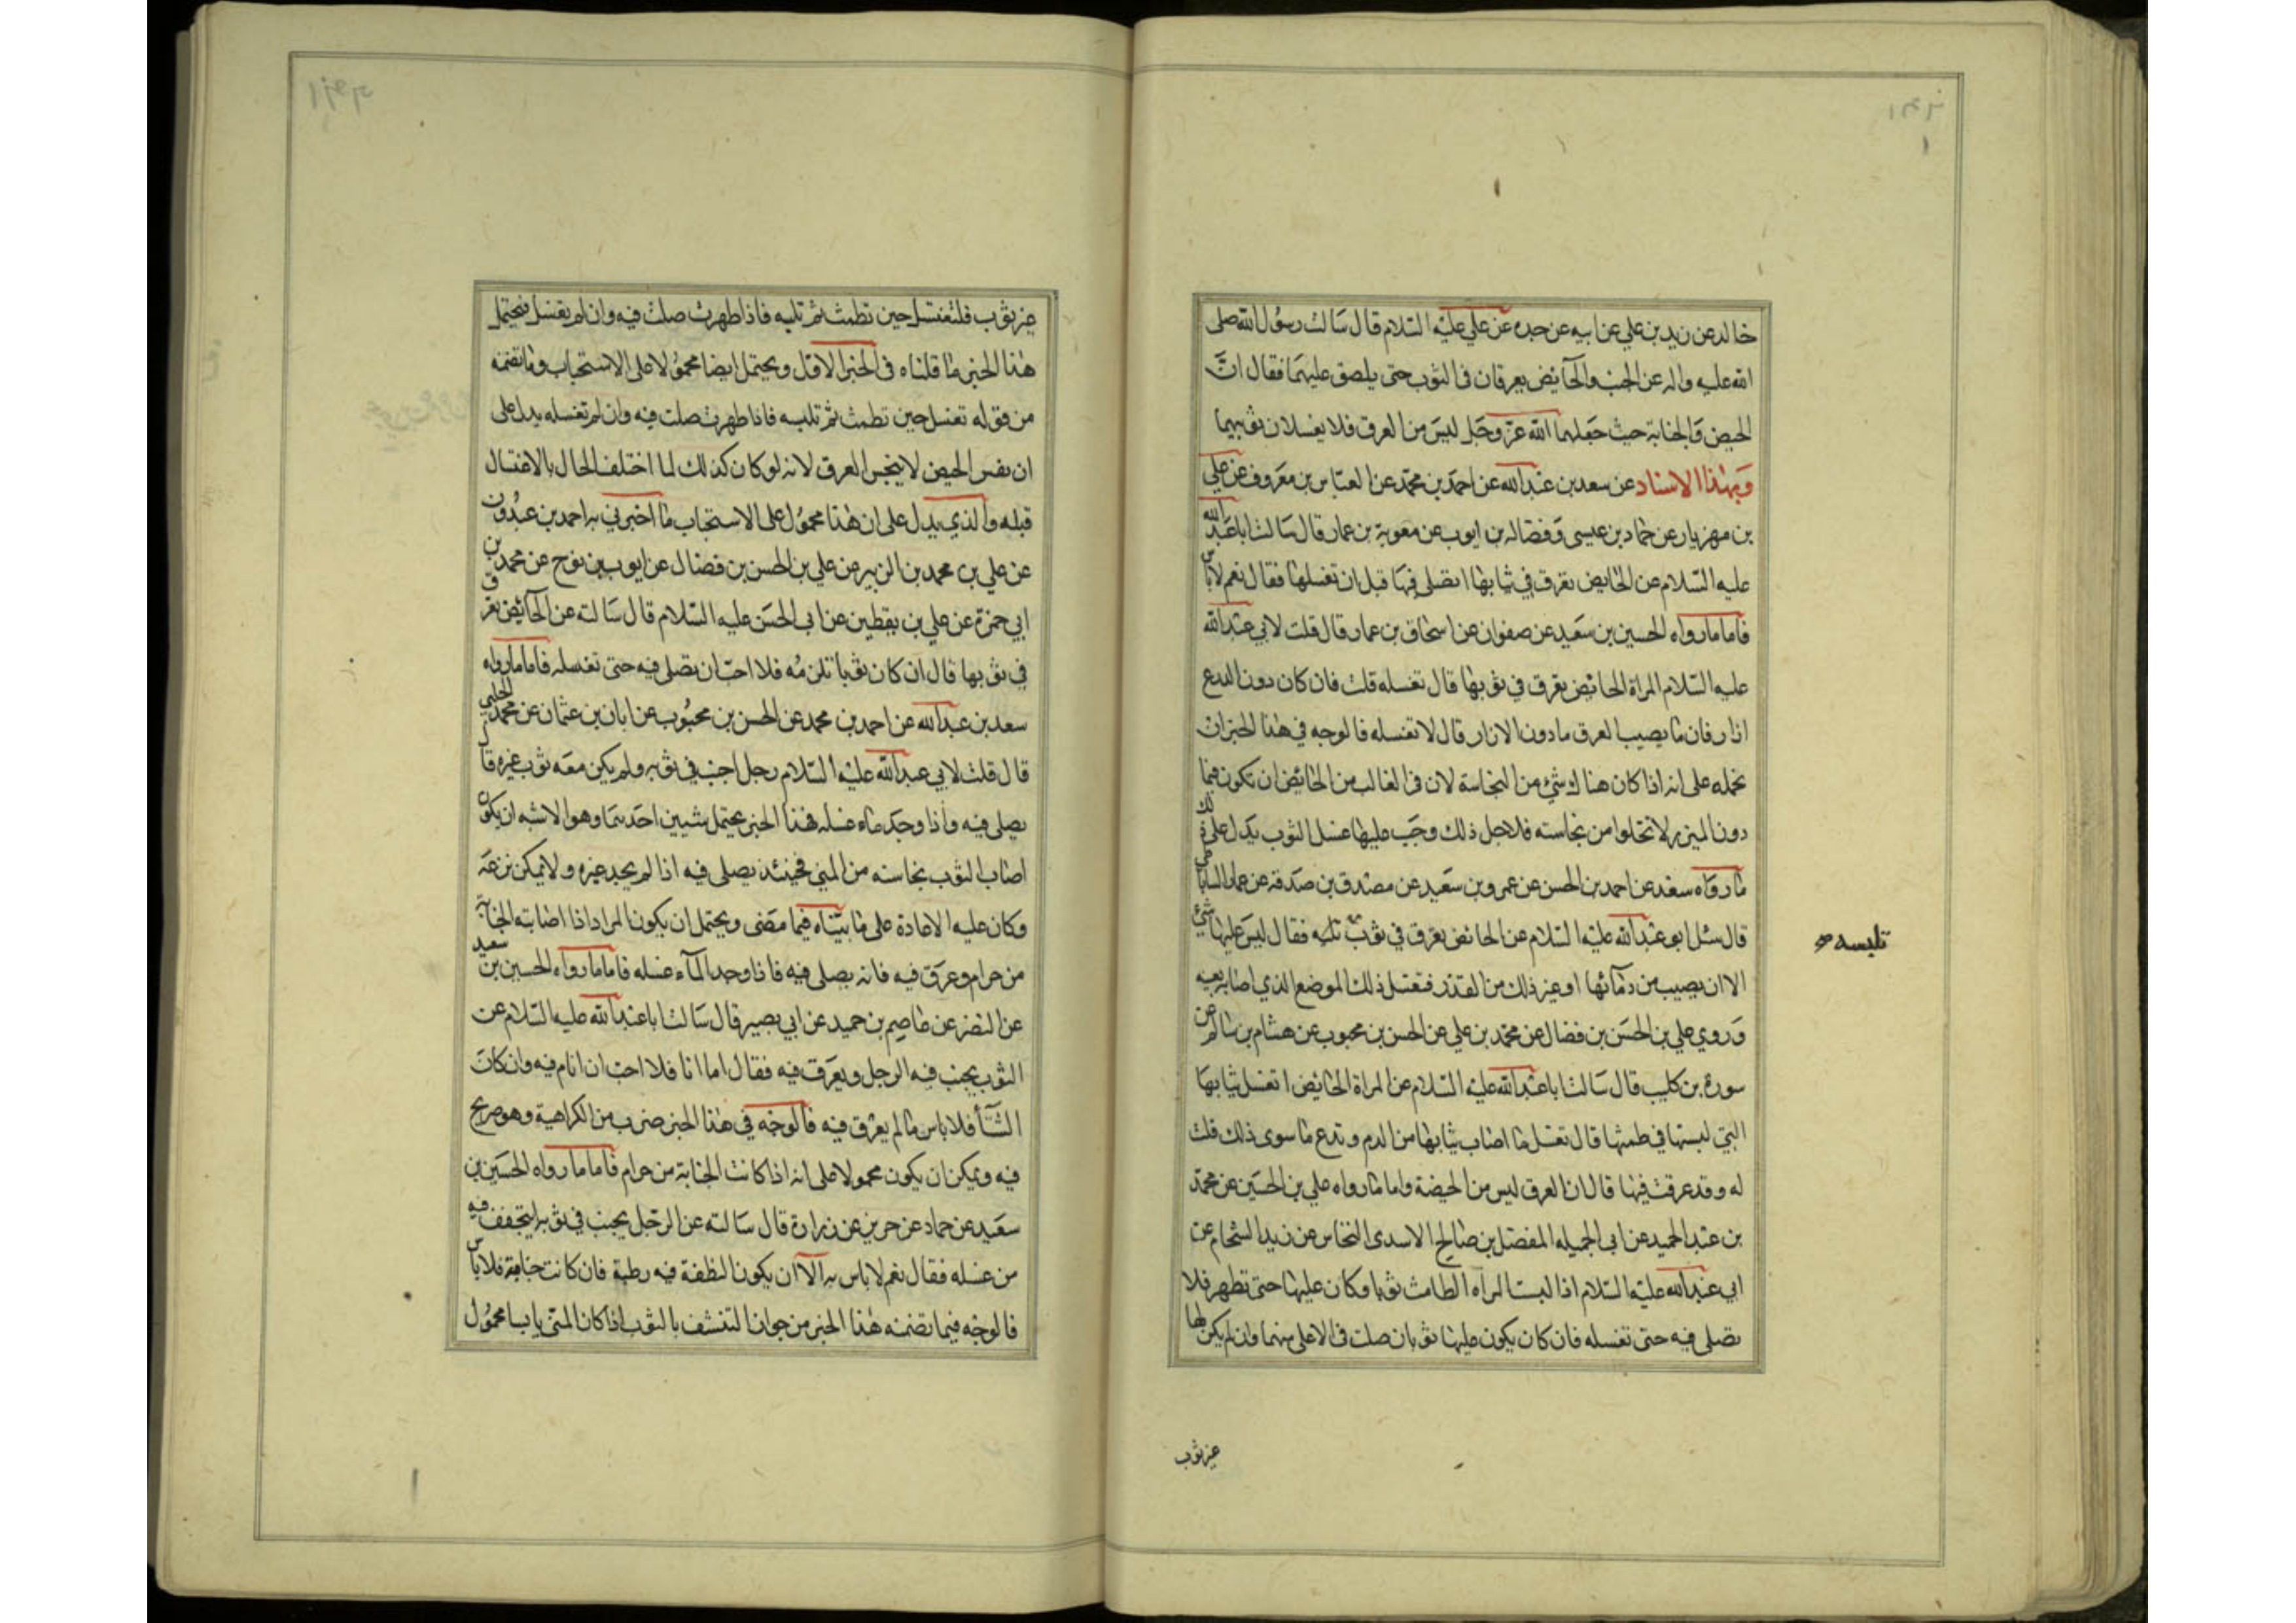 خالد عن زيد بن علي عن ابيه عن جده عن علي عليه السلام قال سالت رسول الله صلى
الله عليه واله عن الجنب والحآيض يعرقان فى الثوب حتى يلصق عليهما فقال انّ
الحيض والجنابة حيث جعلهما الله عز وجل ليس من العرق فلا يغسلان ثوبيهما
وبهذا الاسناد عن سعد بن عبد الله عن احمد بن محمد عن العباس بن معروف عن علي
بن مهزيار عن حماد بن عيسى وفضاله بن ايوب عن معوية بن عمار قال سالت ابا عبد الله
عليه السلام عن الحايض تعرق في ثيابها اتصلى فيها قبل ان تغسلها فقال نعم لا باس
فاما مارواه الحسين بن سعيد عن صفوان عن اسحاق بن عمار قال قلت لابي عبد الله
عليه السلام المراة الحائض تعرق في ثوبها قال تغسله قلت فان كان دون الدرع
ازار فان ما يصيب العرق ما دون الازار قال لا تغسله فالوجه في هذا الخبر ان
نحمله على انه اذا كان هناك شئ من النجاسة لان فى الغالب من الحائض ان تكون فيما
دون الميزر لا تخلوا من نجاسته فلاجل ذلك وجب عليها غسل الثوب يدل على ذلك
ما رواه سعد عن احمد بن الحسن عن عمرو بن سعيد عن مصدق بن صدقة عن عمار الساباطي
قال سئل ابو عبد الله عليه السلام عن الحائض تعرق في ثوب تلبسه فقال ليس عليها شئ
الا ان يصيب من دمآئها او غير ذلك من القذر فتغسل ذلك الموضع الذي اصابه بعينه
وروي علي بن الحسن بن فضال عن محمد بن علي عن الحسن بن محبوب عن هشام بن سالم عن
سورة بن كليب قال سالت ابا عبد الله عليه السلام عن المراة الحائض اتغسل ثيابها
التي لبستها في طمثها قال تغسل ما اصاب ثيابها من الدم وتدع ما سوى ذلك قلت
له وقد عرقت فيها قال ان العرق ليس من الحيضة واما ما رواه علي بن الحسين عن محمد
بن عبد الحميد عن ابى الجميله المفضل بن صالح الاسدى النخاس عن زيد الشحام عن
ابي عبد الله عليه السلام اذا لبست المراه الطامث ثوبا وكان عليها حتى تطهر فلا
تصلى فيه حتى تغسله فان كان يكون عليها ثوبان صلت فى الاعلى منهما وان لم يكن لها
تلبسه
غير ثوب
غير ثوب فلتغتسل حين تطمث ثم تلبسه فاذا طهرت صلت فيه وان لم تغسل فيحتمل
هذا الخبر ما قلناه فى الخبر الاول ويحتمل ايضا محمولا على الاستحباب وما تضمنه
من قوله تغسل حين تطمث ثم تلبسه فاذا طهرت صلت فيه وان لم تغسله يدل على
ان نفس الحيض لا ينجس العرق لانه لو كان كذلك لما اختلف الحال بالاغتسال
قبله والذي يدل على ان هذا محمول على الاستحباب ما اخبرني به احمد بن عبدون
عن علي بن محمد بن الزبير عن علي بن الحسن بن فضال عن ايوب بن نوح عن محمد بن
ابي حمزة عن علي بن يقطين عن ابى الحسن عليه السلام قال سالته عن الحآئض تعرق
في ثوبها قال ان كان ثوبا تلزمه فلا احب ان تصلى فيه حتى تغسله فاما مارواه
سعد بن عبد الله عن احمد بن محمد عن الحسن بن محبوب عن ابان بن عثمان عن محمد الحلبي
قال قلت لابي عبد الله عليه السلام رجل اجنب في ثوبه ولم يكن معه ثوب غيره قال
يصلى فيه واذا وجد ماء غسله فهذا الخبر يحتمل شيين احدهما وهو الاشبه ان يكون
اصاب الثوب نجاسته من المني فحينئذ يصلى فيه اذا لم يجد غيره ولا يمكن نزعه
وكان عليه الاعادة على ما بيناه فيما مضى ويحتمل ان يكون المراد اذا اصابته الجنابة
من حرام وعرق فيه فانه يصلى فيه فاذا وجد المآء غسله فاما مارواه الحسين بن سعيد
عن النضر عن عاصم بن حميد عن ابي بصير قال سالت ابا عبد الله عليه السلام عن
الثوب يجنب فيه الرجل ويعرق فيه فقال اما انا فلا احب ان انام فيه وان كان
الشتآ فلا باس ما لم يعرق فيه فالوجه في هذا الخبر ضرب من الكراهية وهو صريح
فيه ويمكن ان يكون محمولا على انه اذا كانت الجنابة من حرام فاما ما رواه الحسين بن
سعيد عن حماد عن حريز عن زرارة قال سالته عن الرجل يجنب في ثوبه ايتجفف فيه
من غسله فقال نعم لا باس به الا ان يكون النطفة فيه رطبة فان كانت جافة فلا باس
فالوجه فيما تضمنه هذا الخبر من جواز التنشف بالثوب اذا كان المني يابسا محمول